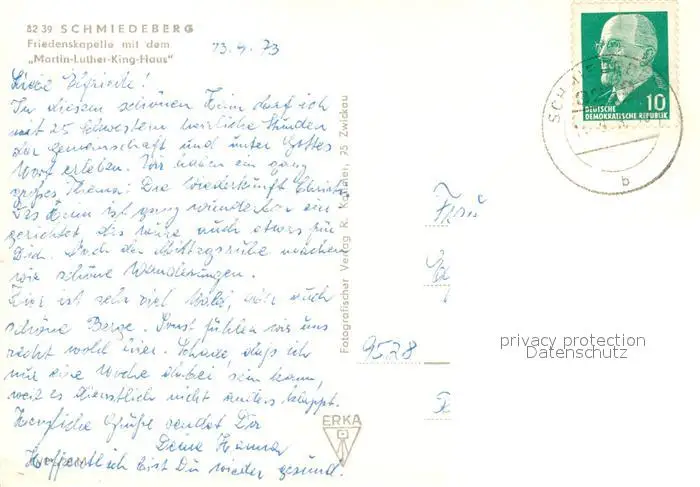 8239 SCHMIEDEBERG
Friedenskapelle mit dem
„Martin-Luther-King-Haus"
13.9.73
Liebe Elfriede!
In diesem schönen Heim darf ich
mit 25 Schwestern herrliche Stunden
der Gemeinschaft und unter Gottes
Wort erleben. Wir haben ein ganz
großes Thema: Die Wiederkunft Christi.
Das Heim ist ganz wunderbar ein-
gerichtet das wäre auch etwas für
Dich. Nach der Mittagsruhe machen
wir schöne Wanderungen.
Hier ist sehr viel Wald, aber auch
schöne Berge. Sonst fühlen wir uns
recht wohl hier. Schade, daß ich
nur eine Woche dabei sein kann,
weil es dienstlich nicht anders klappt.
Herzliche Grüße sendet Dir
Deine Hanna
Hoffentlich bist Du wieder gesund.
Fotografischer Verlag R. 75 Zwickau
ERKA
DEUTSCHE
DEMOKRATISCHE REPUBLIK
10
b
Frau
9528
privacy protection
Datenschutz